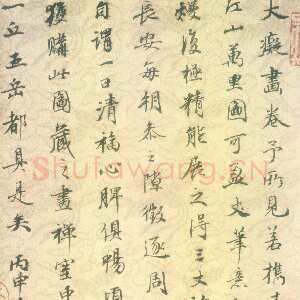 大癡畫卷予所見若檇
江山萬里圖可盈丈筆意
熳復極精能展之得三丈
長安每朝參之隙徵逐周
自謂一日清福心脾俱暢頃
獲購此圖藏之畫禪室中
一丘五岳都具是矣丙申
Shufawang.cn